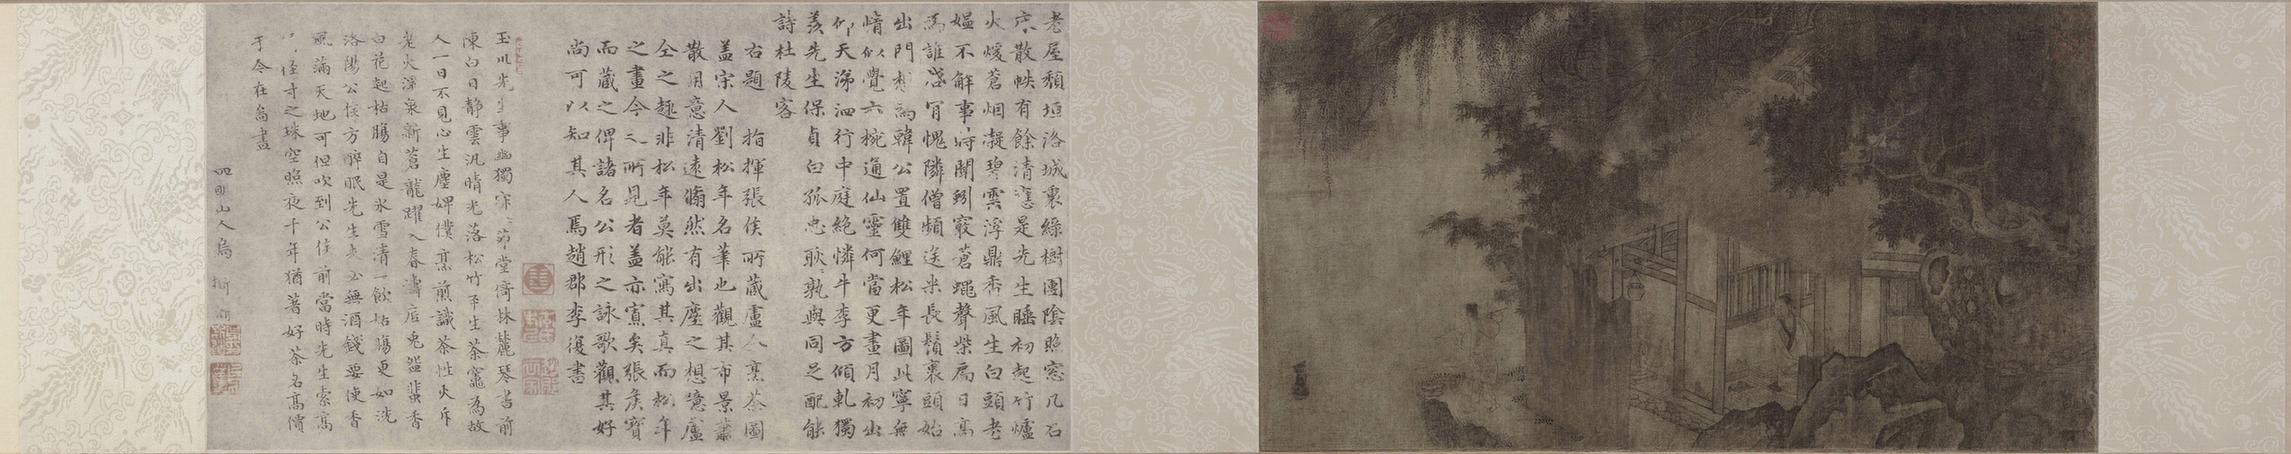 老屋頹垣洛城裏綠樹團陰照窓几石
床散帙有餘清恁是先生睡初起竹爐
火煖蒼烟凝碧雲浮鼎香風生白頭老
媼不解事時聞蚓竅蒼蠅聲柴扃日高
為誰啓肯愧隣僧頻送米長鬚裹頭始
出門却為韓公置雙鯉松年圖此寧無
情似覺六椀通仙靈何當更畫月初出
仰天涕泗行中庭絶憐牛李方傾軋獨
羨先生保貞白孤忠耿耿孰與同足配能
詩杜陵客
右題 指揮張侯所藏盧仝烹茶圖
盖宋人劉松年名筆也觀其布景畫
散用意清遠翛然有出塵之想噫盧
仝之趣非松年莫能寫其真而松年
之畫今之所見者盖亦寡矣張侯寶
而藏之俾諸名公形之詠歌觀其好
尚可以知其人焉趙郡李復書
玉川先生事幽獨寂寂茅堂倚林麓琴書前
陳白日静雲汎晴光落松竹平生茶竈為故
人一日不見心生塵婢僕烹煎識茶性火斥
老火浮泉新蒼龍躍入春濤底兎盌蜚香
白花起枯腸自是氷雪清一飲枯腸更如洗
洛陽公侯方醉眠先生志不無酒錢要使香
風滿天地可但吹到公侯前當時先生索高
徑寸之珠空照夜千年猶著好茶名高價
于今在畱畫
四明山人烏斯